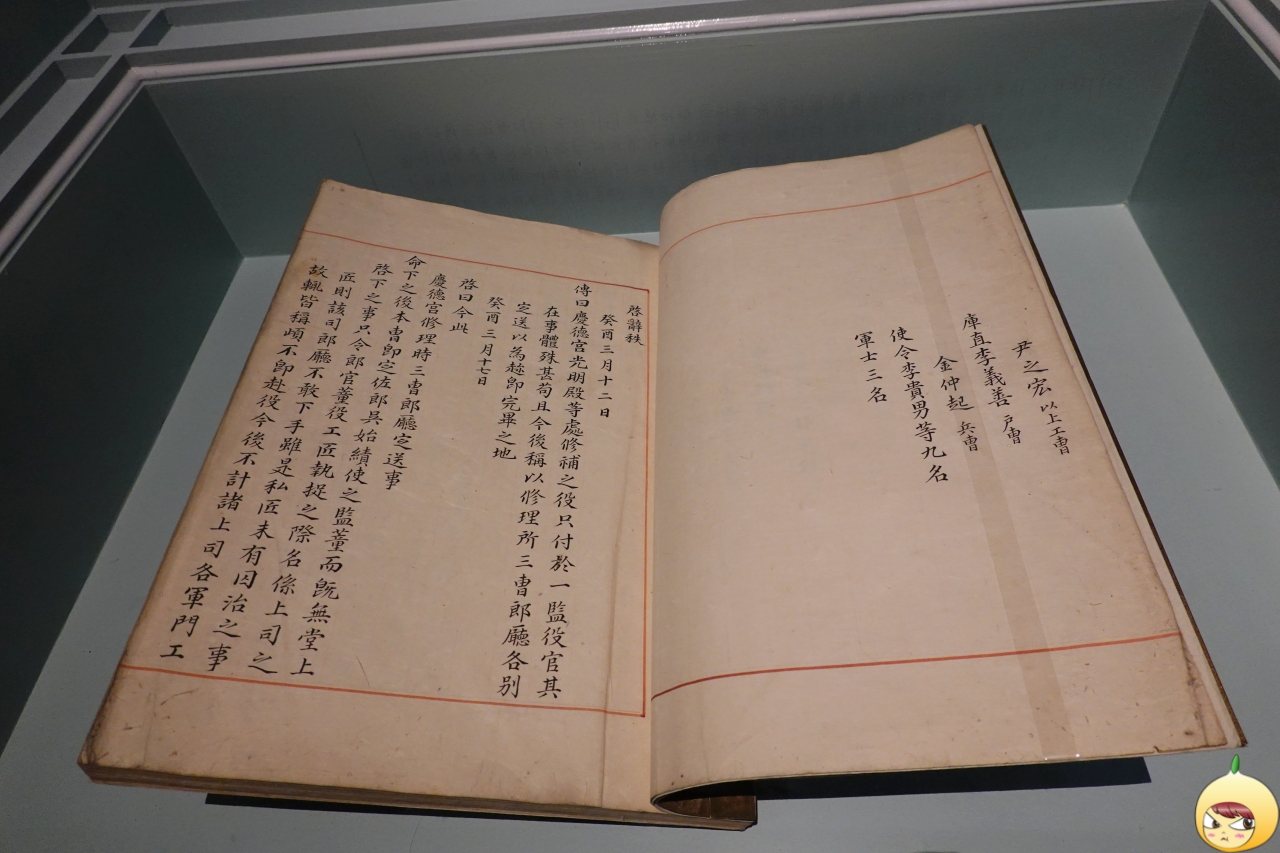 尹之宏 以上工曺
庫直李義善 戶曺
金仲起 兵曺
使令李貴男等九名
軍士三名
啓辭秩
癸酉三月十二日
傳曰慶德宮光明殿等處修補之役只付於一監役官其
在事體殊甚苟且今後稱以修理所三曺郎廳各別
定送以為趂卽完畢之地
癸酉三月十七日
啓曰今此
慶德宮修理時三曺郎廳定送事
命下之後本曺卽定佐郎吳始績使之監董而旣無堂上
啓下之事只令郎官董役工匠執捉之際名係上司之
匠則該司郎廳不敢下手雖是私匠未有囚治之事
故輒皆稱頉不卽赴役今後不計諸上司各軍門工